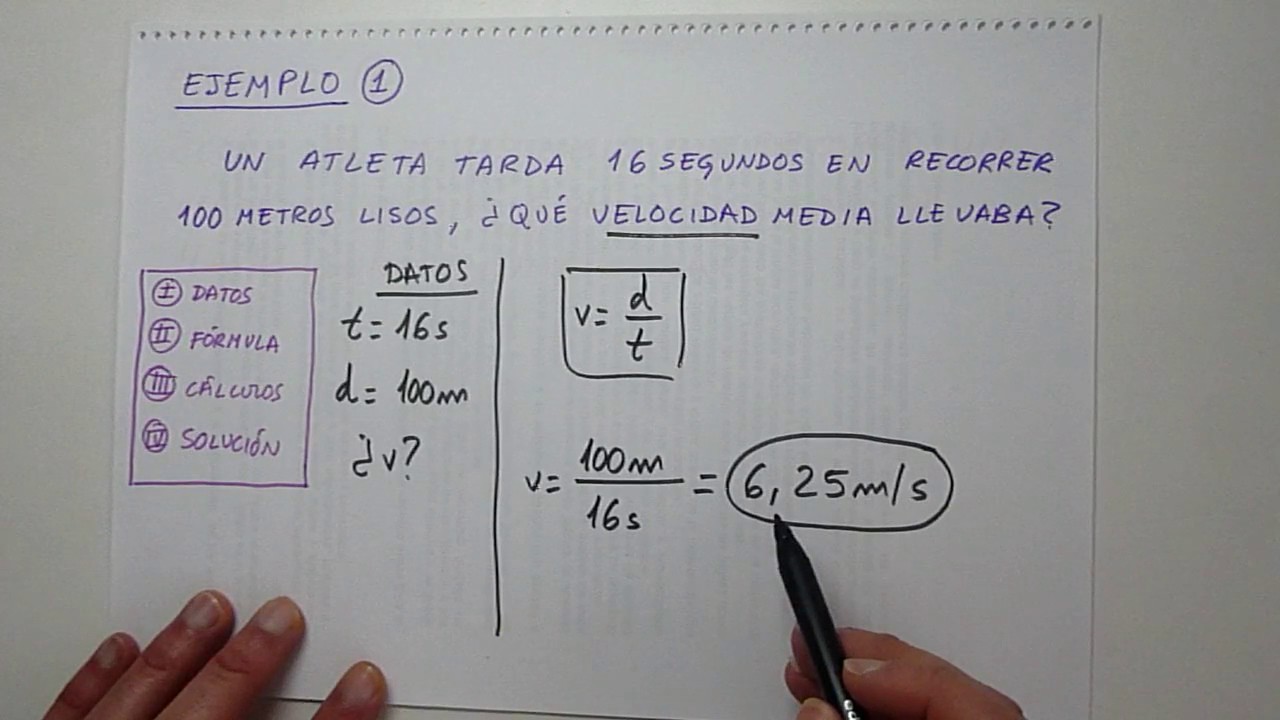 EJEMPLO 1
UN ATLETA TARDA 16 SEGUNDOS EN RECORRER
100 METROS LISOS, ¿QUÉ VELOCIDAD MEDIA LLEVABA?
I DATOS
II FÓRMULA
III CÁLCULOS
IV SOLUCIÓN
DATOS
t = 16s
d = 100m
¿v?
v = d/t
v = 100m/16s = 6,25m/s